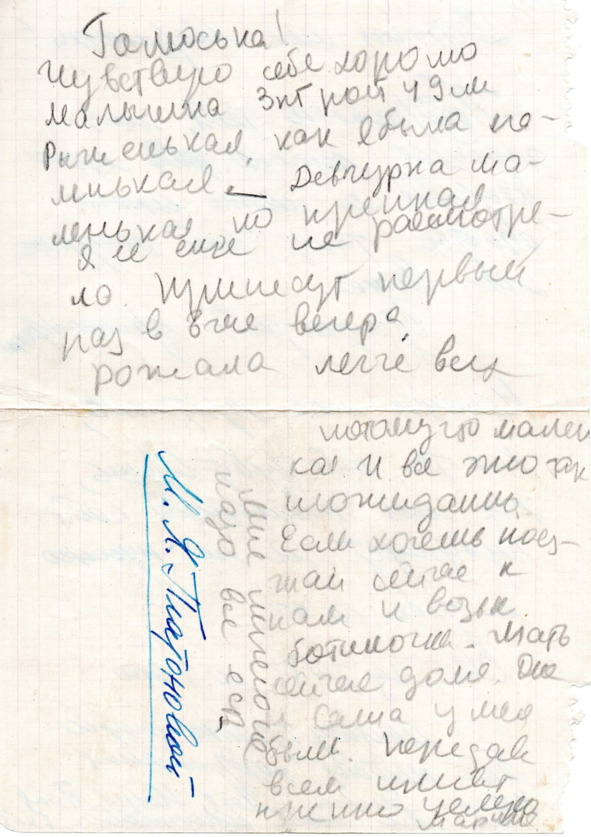 Гамюська!
Чувствую себе хорошо
малышка 3 кг рост 49 см
Рыженькая, как я была ма-
ленькая. — Девчурка ма-
ленькая но крепкая
я её ещё не рассмотре-
ла. Принесут первый
раз в 8 час вечера.
рожала легче всех
потому что малень
кая И все это так
неожиданно
Если хочешь поез-
жай сейчас к
нам и возьм
ботиночки. Мать
сейчас дома. Она
и Саша у меня
были. Передай
всем привет
крепко целую
Мария
Мне ничего не
надо все есть
М. Я. Платоновой